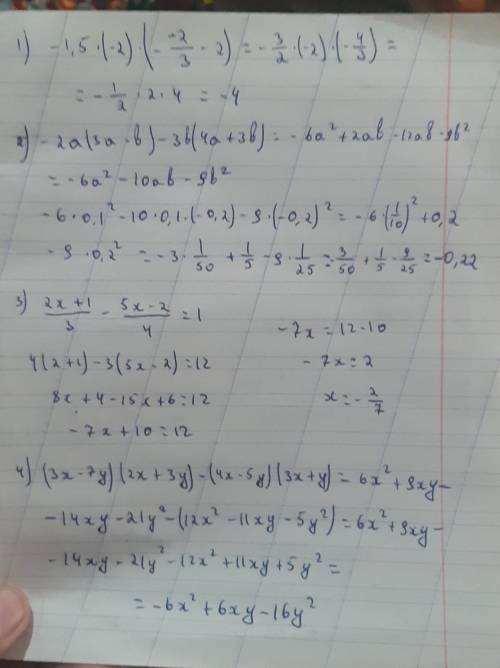 1) -1,5·(-2)·(-\frac{-2}{3}-2) = -\frac{3}{2}·(-2)·(-\frac{4}{3}) =
= -\frac{1}{2}·2·4 = -4
2) -2a(3a-b)-3b(4a+3b) = -6a²+2ab-12ab-9b²
= -6a²-10ab-9b²
-6·0,1²-10·0,1·(-0,2)-9·(-0,2)² = -6·(\frac{1}{10})²+0,2
-9·0,2² = -3·\frac{1}{50}+\frac{1}{5}-9·\frac{1}{25} = \frac{3}{50}+\frac{1}{5}-\frac{9}{25} = -0,22
3) \frac{2x+1}{3}-\frac{5x-2}{4} = 1
4(2+1)-3(5x-2) = 12
8x+4-15x+6 = 12
-7x+10 = 12
-7x = 12-10
-7x = 2
x = -\frac{2}{7}
4) (3x-7y)(2x+3y)-(4x-5y)(3x+y) = 6x²+9xy-
-14xy-21y²-(12x²-11xy-5y²) = 6x²+9xy-
-14xy-21y²-12x²+11xy+5y² =
= -6x²+6xy-16y²